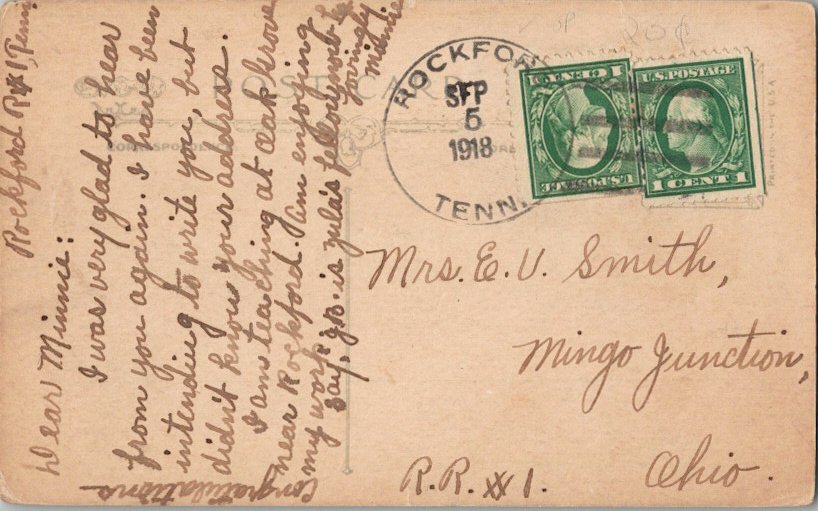 Rockford R#1, Tenn
Dear Minnie:
I was very glad to hear
from you again. I have been
intending to write you, but
didn't know your address.
I am teaching at Oak Grove
near Rockford. Am enjoying
my work.
Say, J.B. is Zula's fellow
Lovingly
Congratulations
POST CARD
CORRESPONDENCE
ROCKFORD
SEP
5
1918
TENN.
U.S. POSTAGE
1 CENT 1
U.S. POSTAGE
1 CENT 1
20¢
Mrs. E. V. Smith,
Mingo Junction,
R.R. #1. Ohio.